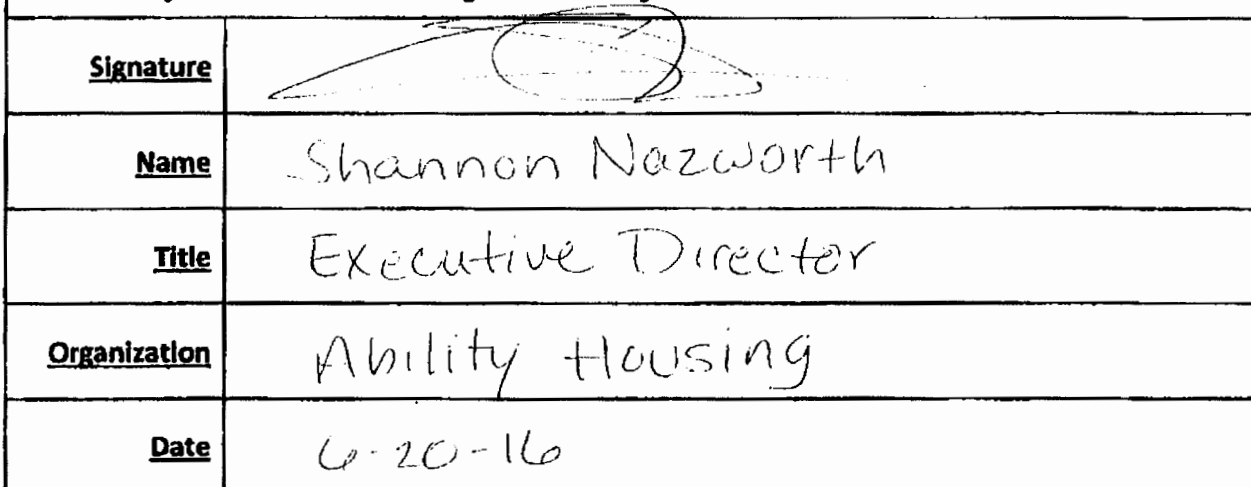 Signature
Name Shannon Nazworth
Title Executive Director
Organization Ability Housing
Date 6-20-16